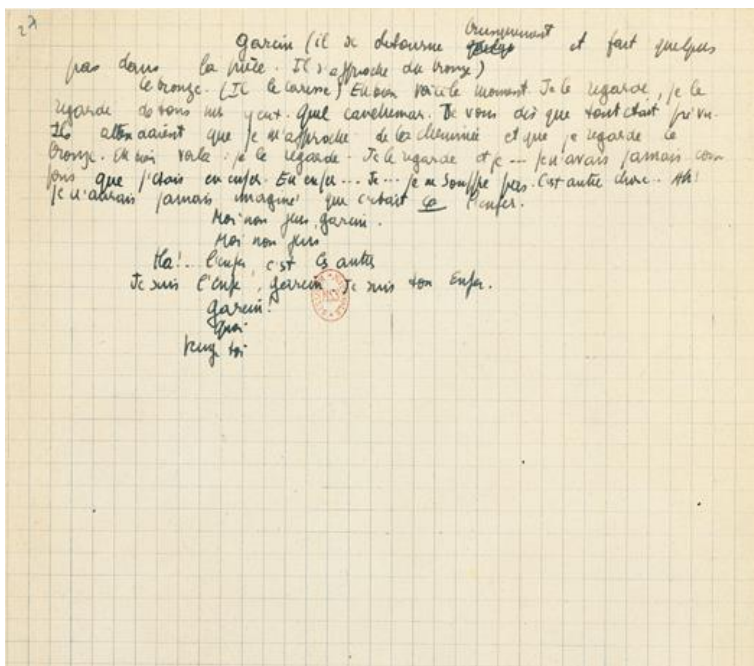 brusquement
Garcin (il se détourne et fait quelques
pas dans la pièce. Il s'approche du bronze)
le bronze. (Il le caresse) Eh bien voici le moment. Je le regarde, je le
regarde de tous mes yeux. Quel cauchemar. Je vous dis que tout était prévu.
Ils attendaient que je m'approche de la cheminée et que je regarde le
bronze. Eh bien voilà : je le regarde. Je le regarde et je --- je n'avais jamais com
pris que j'étais en enfer. En enfer... Je --- je ne souffre pas. C'est autre chose.. Ah!
Je n'aurais jamais imaginé que c'était ça l'enfer.
Moi non plus, Garcin.
Moi non plus
Ha!.. l'enfer, c'est les autres
Je suis l'enfer, Garcin. Je suis ton Enfer.
Garcin!
Quoi
toi